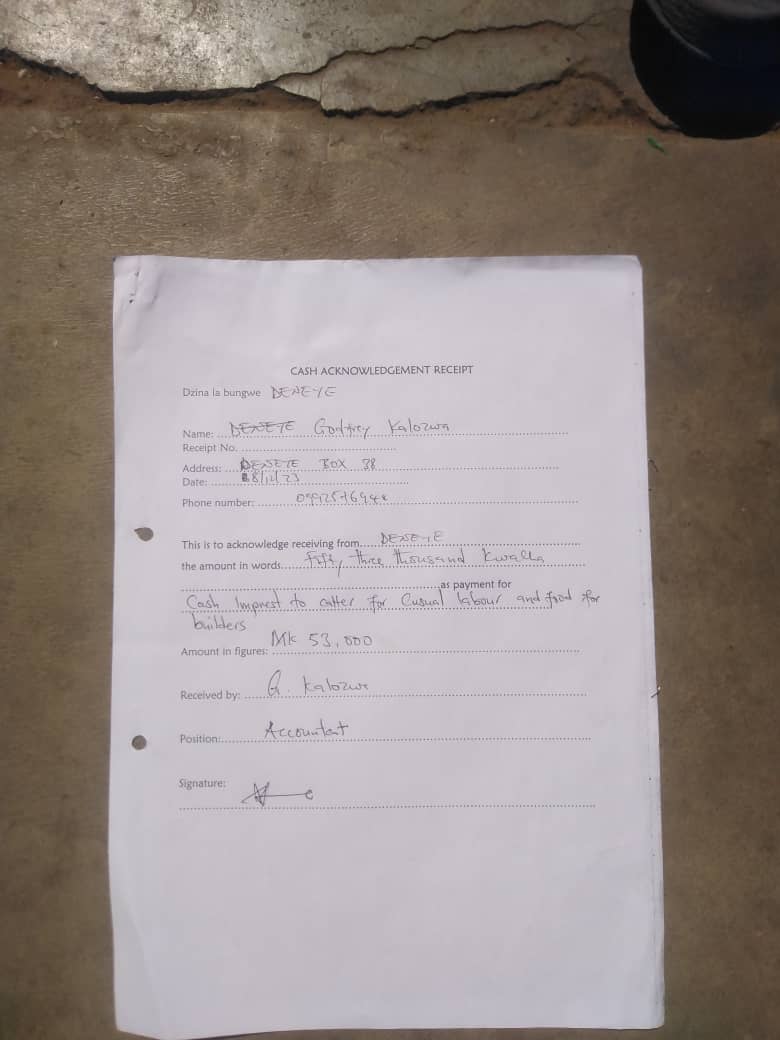 CASH ACKNOWLEDGEMENT RECEIPT
Dzina la bungwe DENEYE
Name: DENEYE Godfrey Kalozwa
Receipt No.
Address: DENEYE BOX 38
Date: 8/12/23
Phone number:
This is to acknowledge receiving from DENEYE
the amount in words Fifty three thousand kwacha
as payment for
Cash Imprest to catter for Cusual labour and food for
builders
Amount in figures: MK 53,000
Received by: G. Kalozwa
Position: Accountant
Signature: